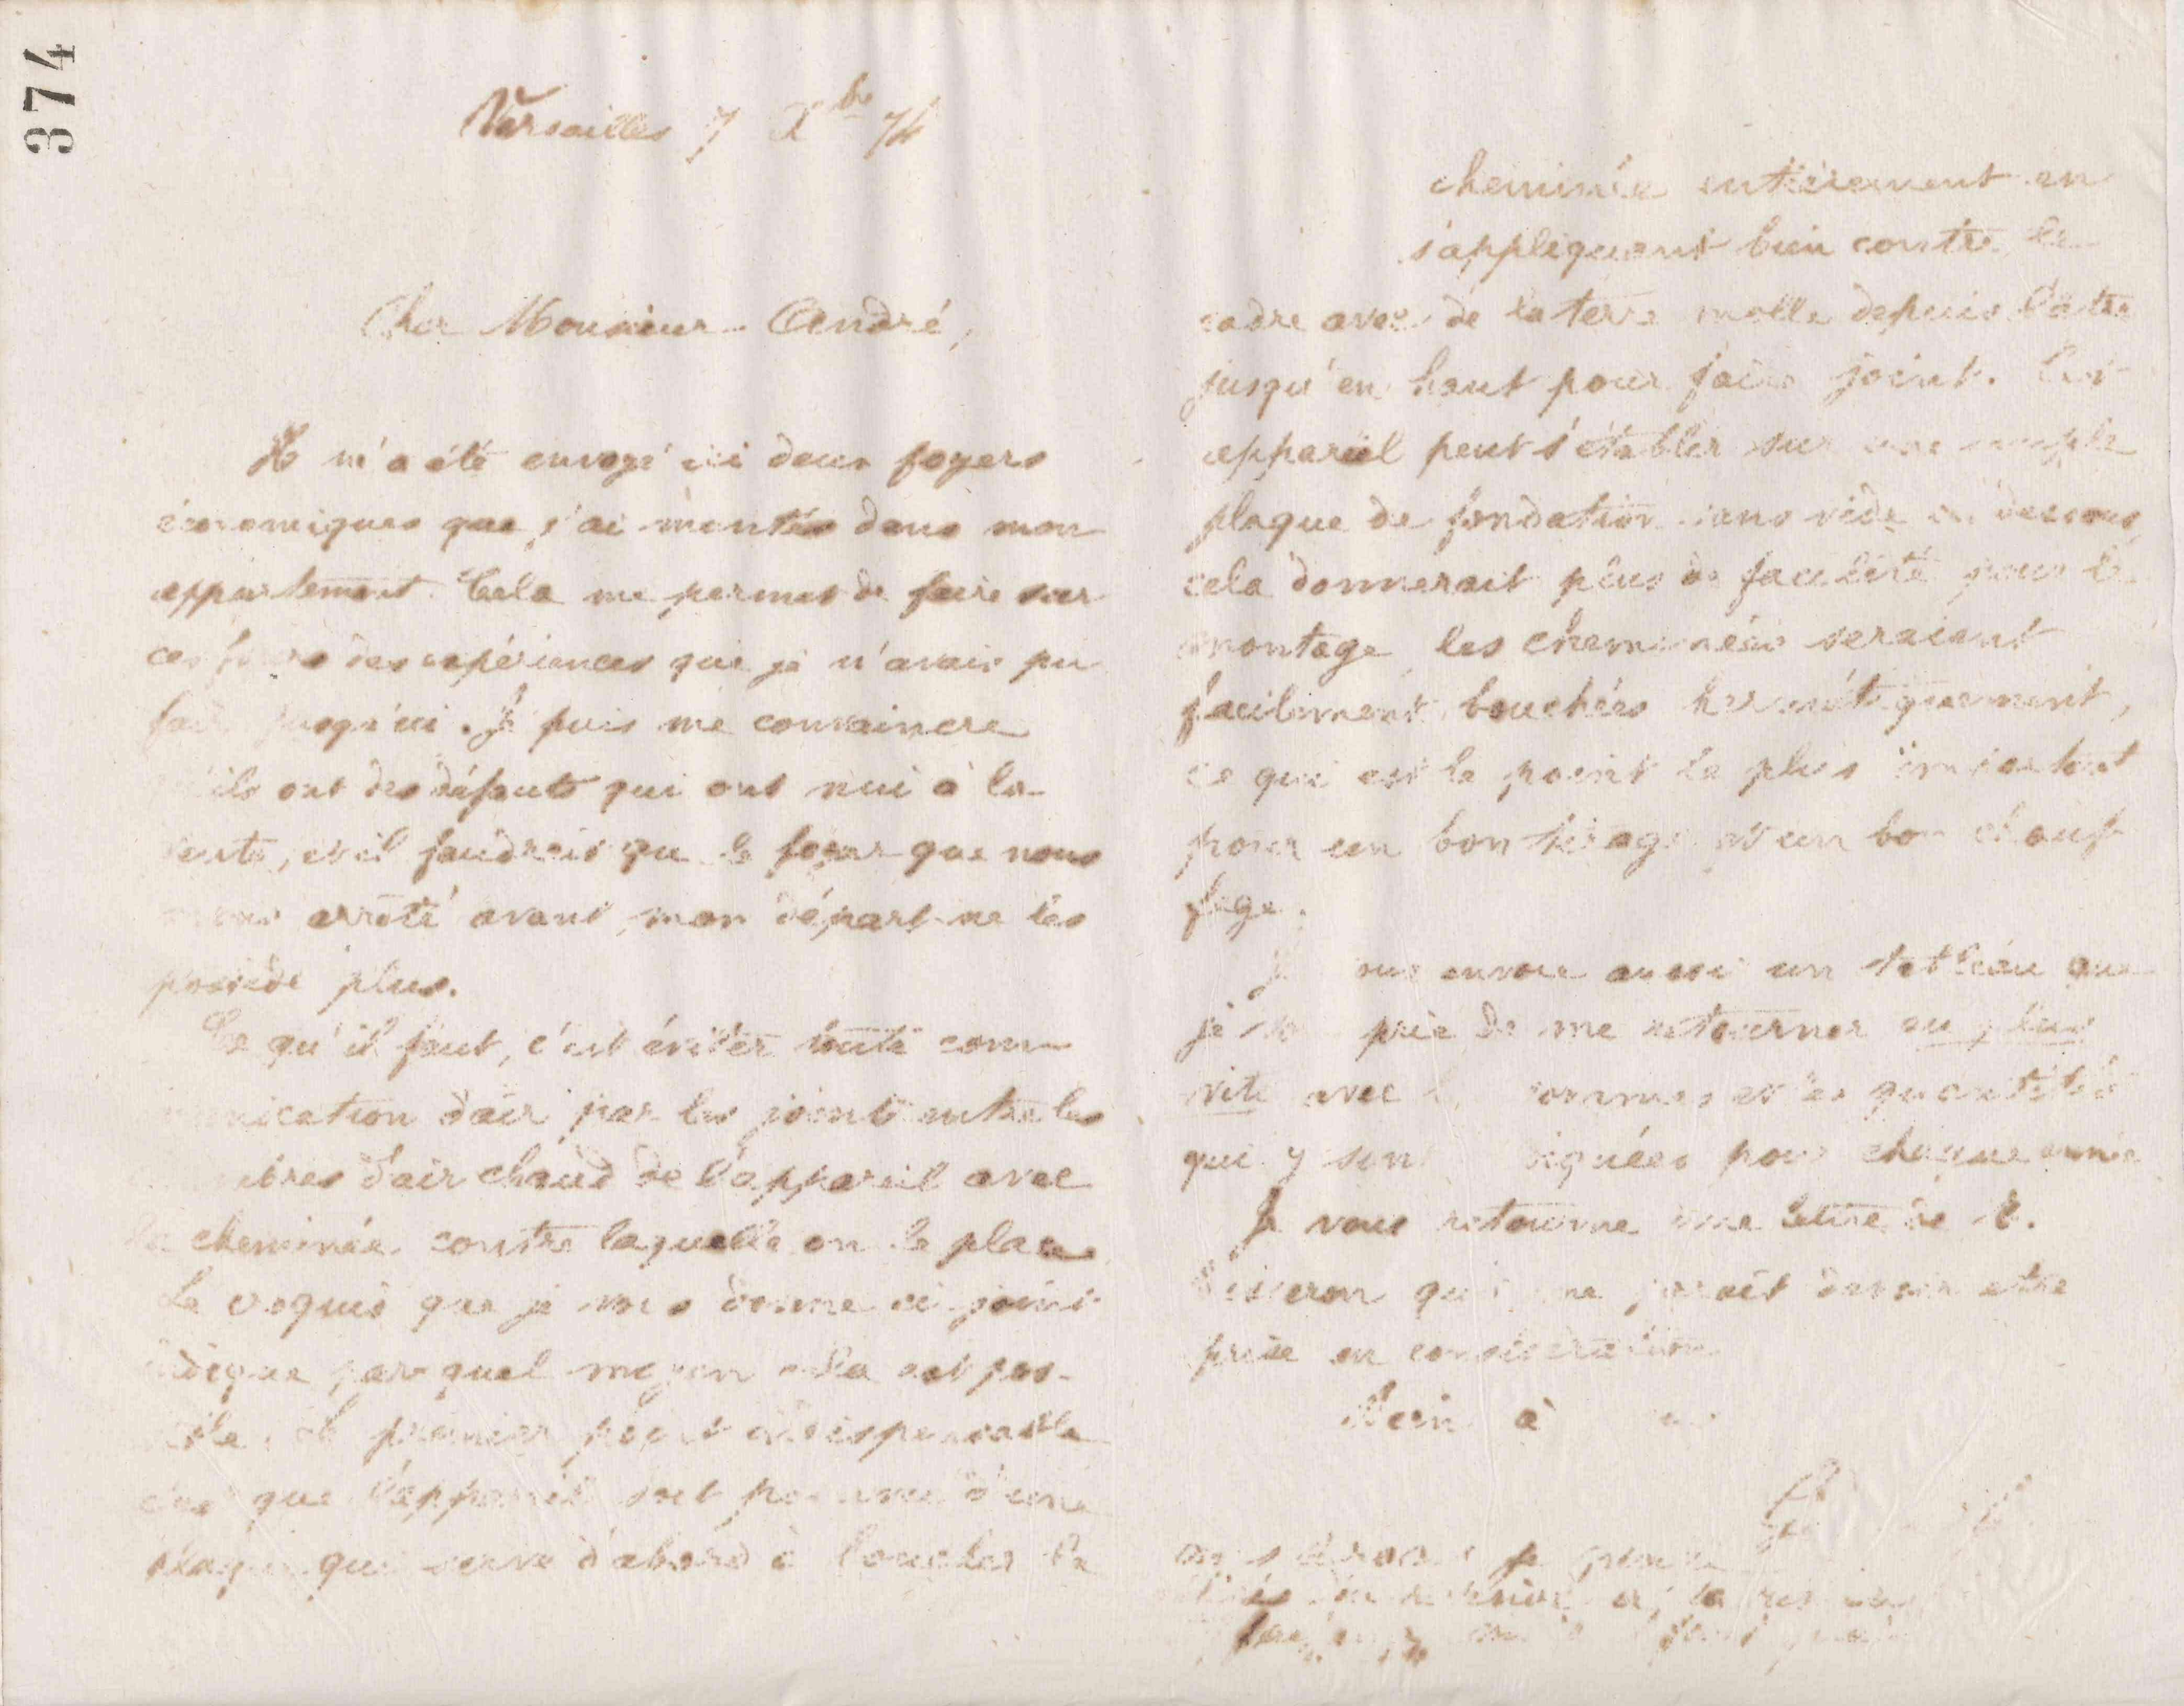 374
Versailles 7 Xbre 74
Cher Monsieur André,
Il m'a été envoyé ici deux foyers
économiques que j'ai montés dans mon
appartement. Cela me permet de faire sur
ces foyers des expériences que je n'avais pu
faire jusqu'ici. Je puis me convaincre
qu'ils ont des défauts qui ont nui à la
vente, et il faudrait que le foyer que nous
avons arrêté avant mon départ ne les
possède plus.
Ce qu'il faut, c'est éviter toute com-
munication d'air par les joints entre les
chambres d'air chaud de l'appareil avec
la cheminée contre laquelle on le place.
Le croquis que je vous donne ci-joint
indique par quel moyen cela est pos-
sible. Le premier point indispensable
c'est que l'appareil soit pourvu d'une
plaque qui serve d'abord à boucher la
cheminée entièrement en
s'appliquant bien contre le
cadre avec de la terre molle depuis l'âtre
jusqu'en haut pour faire joint. Cet
appareil peut s'établir sur une simple
plaque de fondation sans vide en dessous,
cela donnerait plus de facilité pour le
montage, les cheminées seraient
facilement bouchées hermétiquement,
ce qui est le point le plus important
pour un bon tirage et un bon chauf-
fage.
Je vous envoie aussi un tableau que
je vous prie de me retourner au plus
vite avec les sommes et les quantités
qui y sont indiquées pour chaque année
Je vous retourne une lettre de M.
qui me paraît devoir être
prise en considération
Bien à vous
je pense